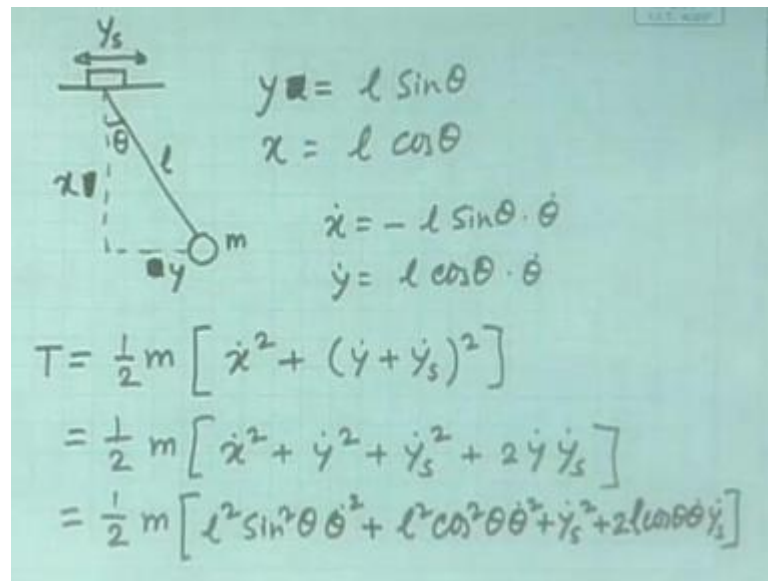 y_s
θ
l
x
m
y
y = l sinθ
x = l cosθ
ẋ = − l sinθ · θ̇
ẏ = l cosθ · θ̇
T = ½ m [ ẋ² + (ẏ + ẏ_s)² ]
= ½ m [ ẋ² + ẏ² + ẏ_s² + 2 ẏ ẏ_s ]
= ½ m [ l² sin²θ θ̇² + l² cos²θ θ̇² + ẏ_s² + 2l cosθ θ̇ ẏ_s ]